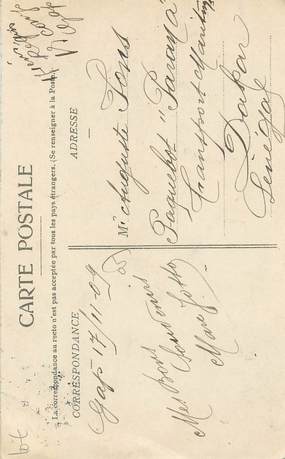 CARTE POSTALE
La correspondance au recto n'est pas acceptée par tous les pays étrangers. (Se renseigner à la Poste).
CORRESPONDANCE
Gap 17/11-09
Mes Bons
Souvenirs
ADRESSE
Mr Auguste Pons
Paquebot "Parana"
Transport Maritime
Dakar
Sénégal